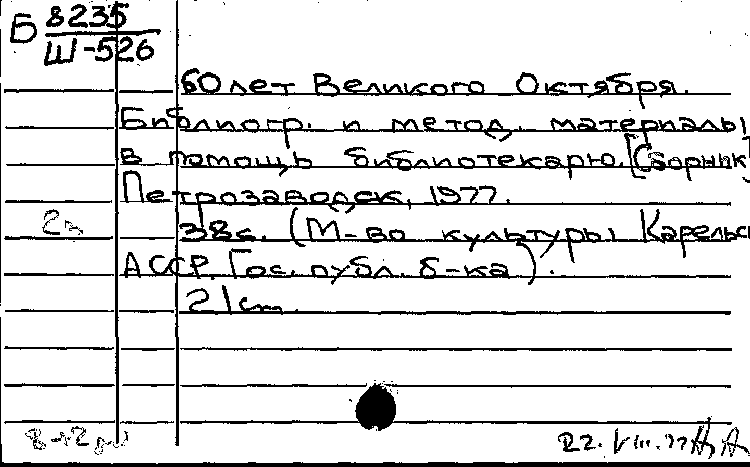 Б 8235
Ш-526
60 лет Великого Октября.
Библиогр. и метод. материалы
в помощь библиотекарю. [Сборник]
Петрозаводск, 1977.
38с. (М-во культуры Карельск
АССР. Гос. публ. б-ка).
21 cm.
22.VIII.77